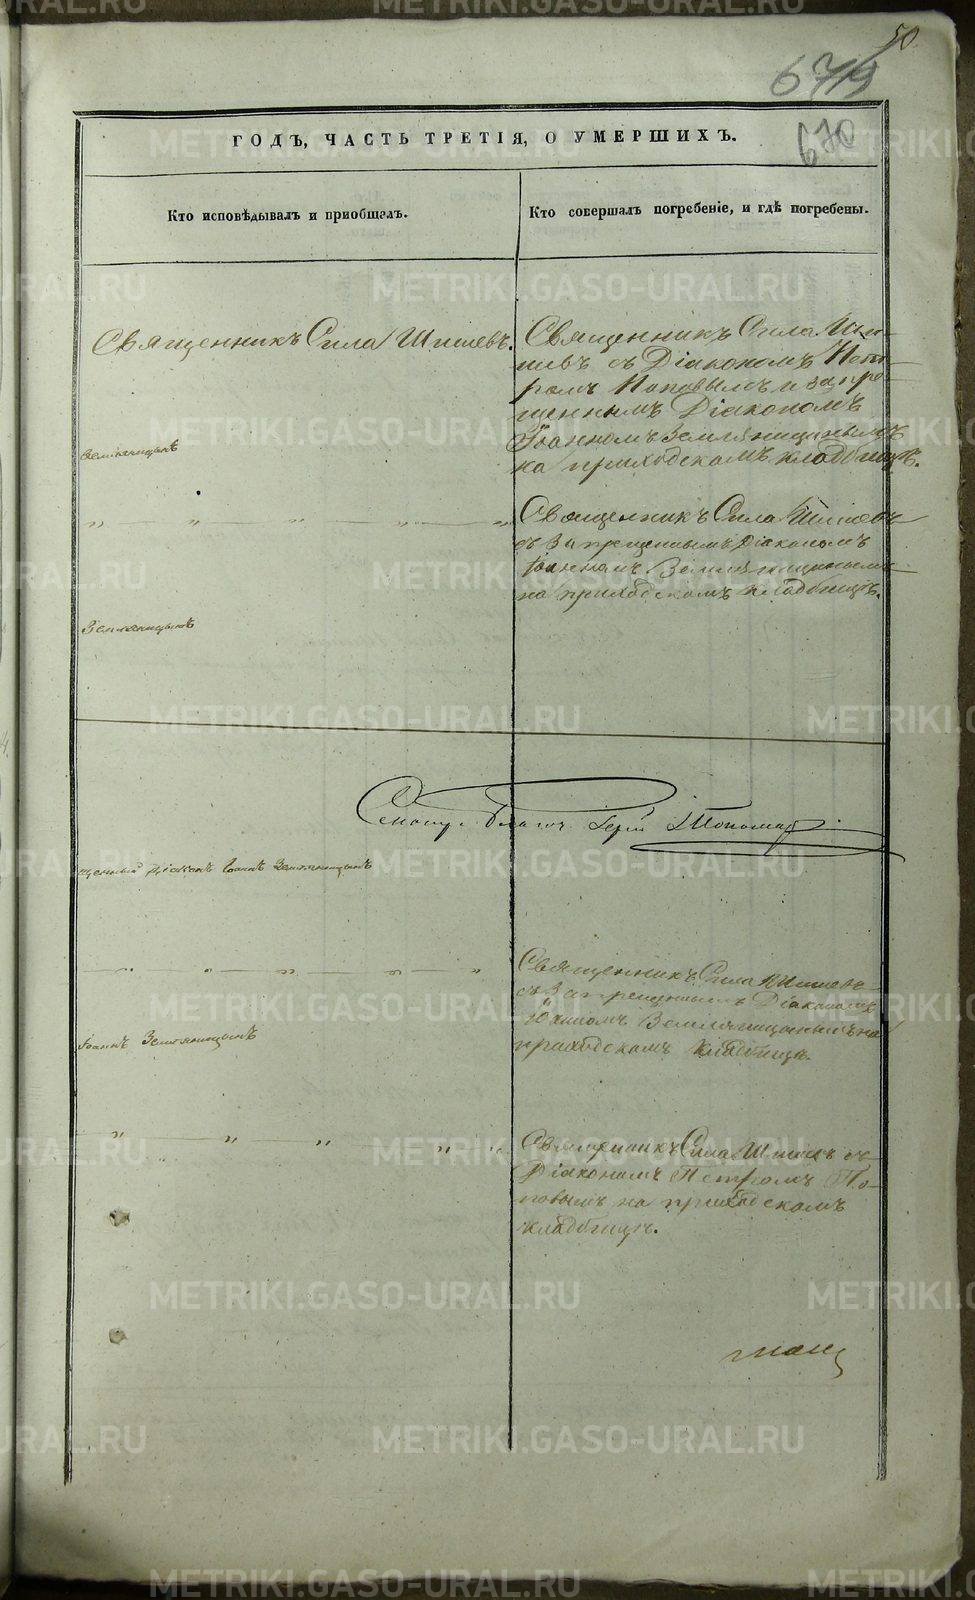 50
679
670
ГОДЪ, ЧАСТЬ ТРЕТІЯ, О УМЕРШИХЪ.
Кто исповѣдывалъ и приобщалъ.
Кто совершалъ погребеніе, и гдѣ погребены.
Священникъ Сила Шишевъ.
Священникъ Сила Ши-
шевъ съ Діакономъ Пет-
ромъ Поповымъ и запре-
щеннымъ Діакономъ
Іоанномъ Земляницынымъ
на приходскомъ кладбищѣ.
Земляницынъ
" " " " "
Священникъ Сила Шишевъ
съ запрещеннымъ Діакономъ
Іоанномъ Земляницынымъ
на приходскомъ кладбищѣ.
Земляницынъ
щенный Діаконъ Іоаннъ Земляницынъ
" " " " "
Священникъ Сила Шишевъ
съ Запрещеннымъ Діакономъ
Іоанномъ Земляницынымъ на
приходскомъ кладбищѣ.
Іоаннъ Земляницынъ
" " " " "
Священникъ Сила Шишевъ съ
Діакономъ Петромъ По-
повымъ на приходскомъ
кладбищѣ.
METRIKI.GASO-URAL.RU